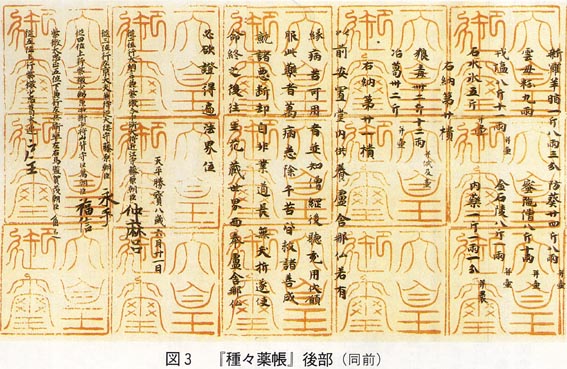 新羅羊脂八両三分 防葵廿四斤八両 并壺
雲母粉九両 蜜陀僧八斤十両 并壺
戎塩八斤十一両 并壺 金石陵八斤一両 并壺
石水氷五斤 并壺 内薬一斤一両一分 并裹
右納第廿櫃
狼毒卌二斤十二両 并堝及壺
冶葛卅二斤 并壺
右納第廿一櫃
以前安置堂内供養盧舍那仏若有
縁病苦可用者並知僧綱後聴充用伏願
服此薬者萬病悉除千苦皆救諸善成
就諸悪断却自非業道長無夭折遂使
命終之後往生花蔵世界面奉盧舍那仏
必欲證得遍法界位
天平勝寶八歳六月廿一日
従二位行大納言兼紫微令中衛大将近江守藤原朝臣 仲麻呂
従三位行左京大夫兼侍従大倭守藤原朝臣 永手
従四位上行紫微少弼兼中衛少将山背守巨萬朝臣 福信
紫微大忠正五位下兼行左兵衛率左右馬監賀茂朝臣 角足
従五位上行紫微少忠葛木連 戸主
天皇御璽
図3 『種々薬帳』後部（同前）